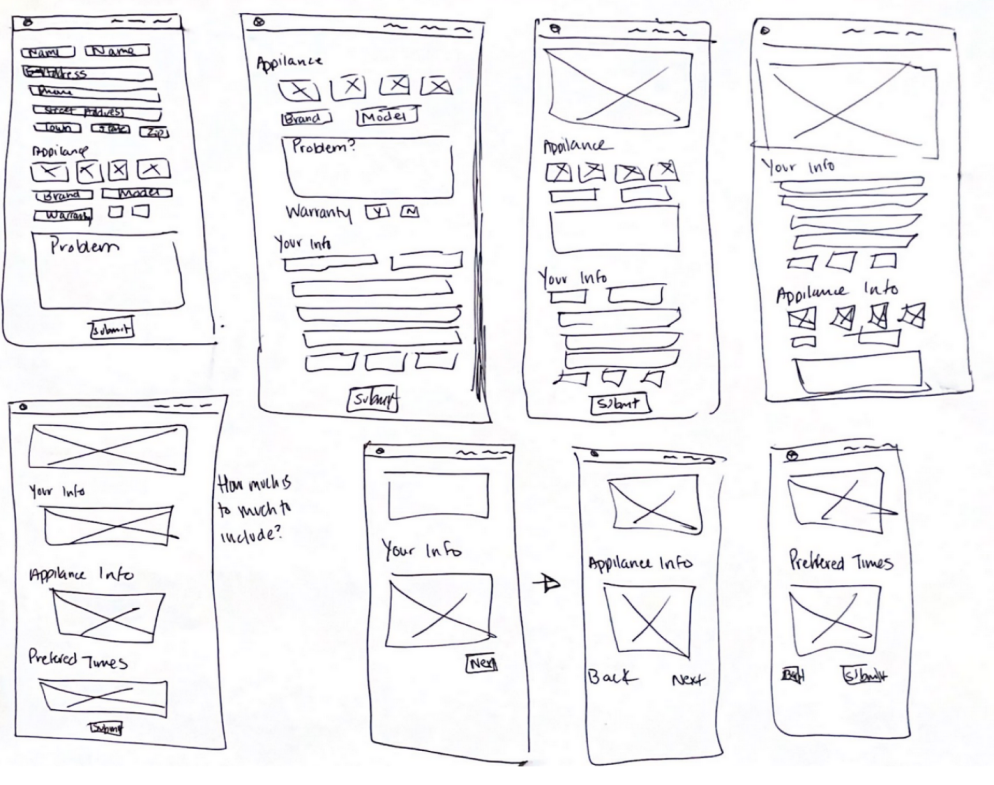 Name Name
Address
Phone
Street Address
Town State Zip
Appliance
Brand Model
Warranty
Problem
Submit
Appliance
Brand Model
Problem?
Warranty Y N
Your Info
Submit
Appliance
Your Info
Submit
Your Info
Appliance Info
Your Info
Appliance Info
Prefered Times
Submit
How much is
to much to
include?
Your Info
Next
Appliance Info
Back Next
Preffered Times
Submit